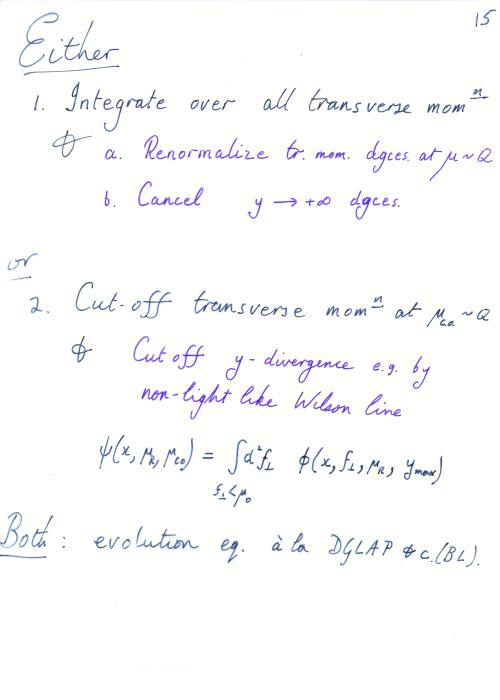 15
Either
1. Integrate over all transverse momⁿ
& a. Renormalize tr. mom. dgces. at μ ~ Q
b. Cancel y → +∞ dgces.
or
2. Cut-off transverse momⁿ at μ_c.o. ~ Q
& Cut off y-divergence e.g. by
non-light like Wilson line
ψ(x, μ_R, μ_co) = ∫ d²f_⊥ ϕ(x, f_⊥, μ_R, y_max)
f_⊥ < μ_0
Both : evolution eq. à la DGLAP &c. (BL).